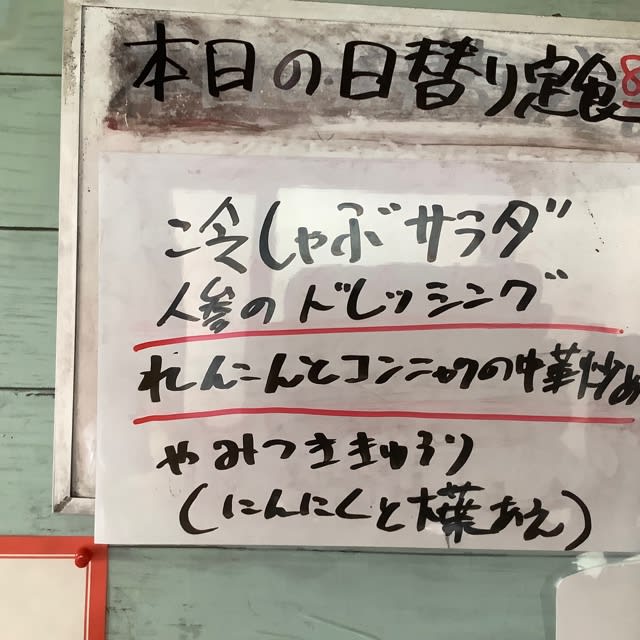 本日の日替り定食 8
冷しゃぶサラダ
人参のドレッシング
れんこんとコンニャクの中華炒め
やみつききゅうり
(にんにくと大葉あえ)